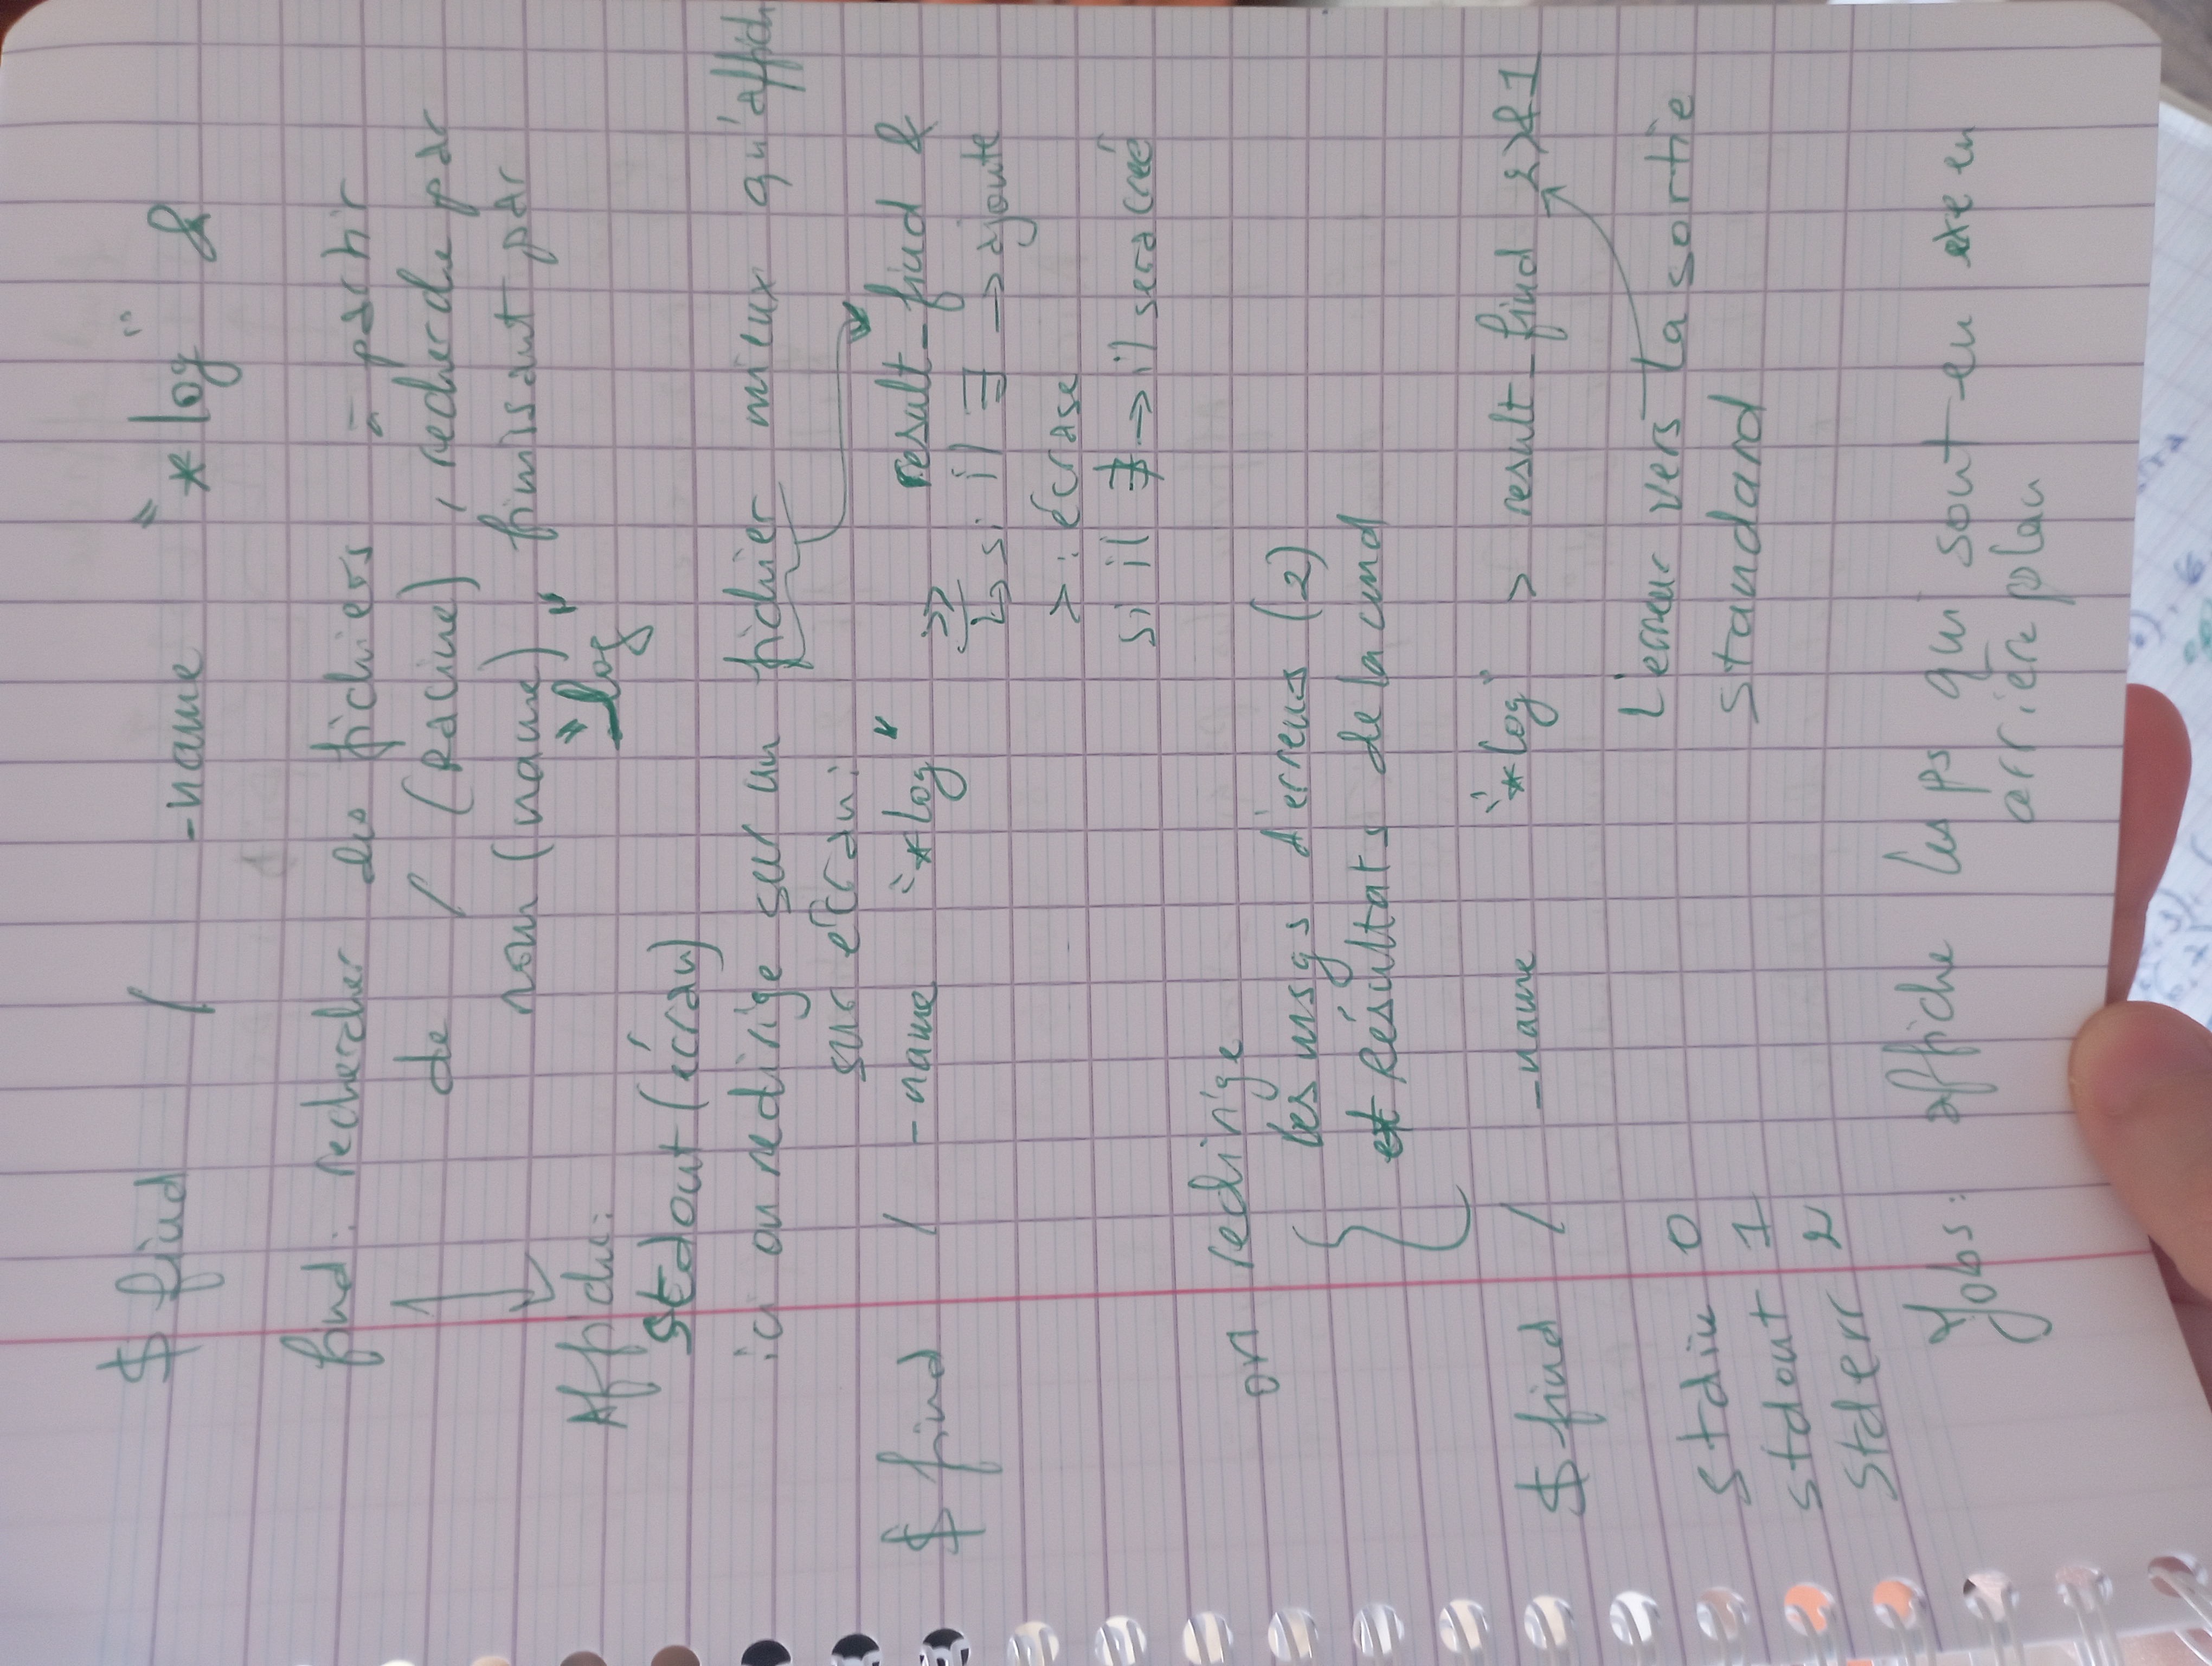 $ find / -name "*log" &
find : rechercher des fichiers à partir
de / (Racine) , recherche par
nom (name) , finissant par
"log"
Affiche:
stdout (écran)
ici on redirige sur un fichier mieux qu'affich
sur ecran:
$ find / -name "*log" >> result_find &
↳ si il ∃ → ajoute
> : écrase
si il ∄ → il sera créé
on redirige
les msgs d'erreurs (2)
et Résultats de la cmd
$ find / -name "*log" > result_find 2>&1
L'erreur vers la sortie
standard
stdin 0
stdout 1
stderr 2
Jobs: affiche les ps qui sont en exe en
arrière plan